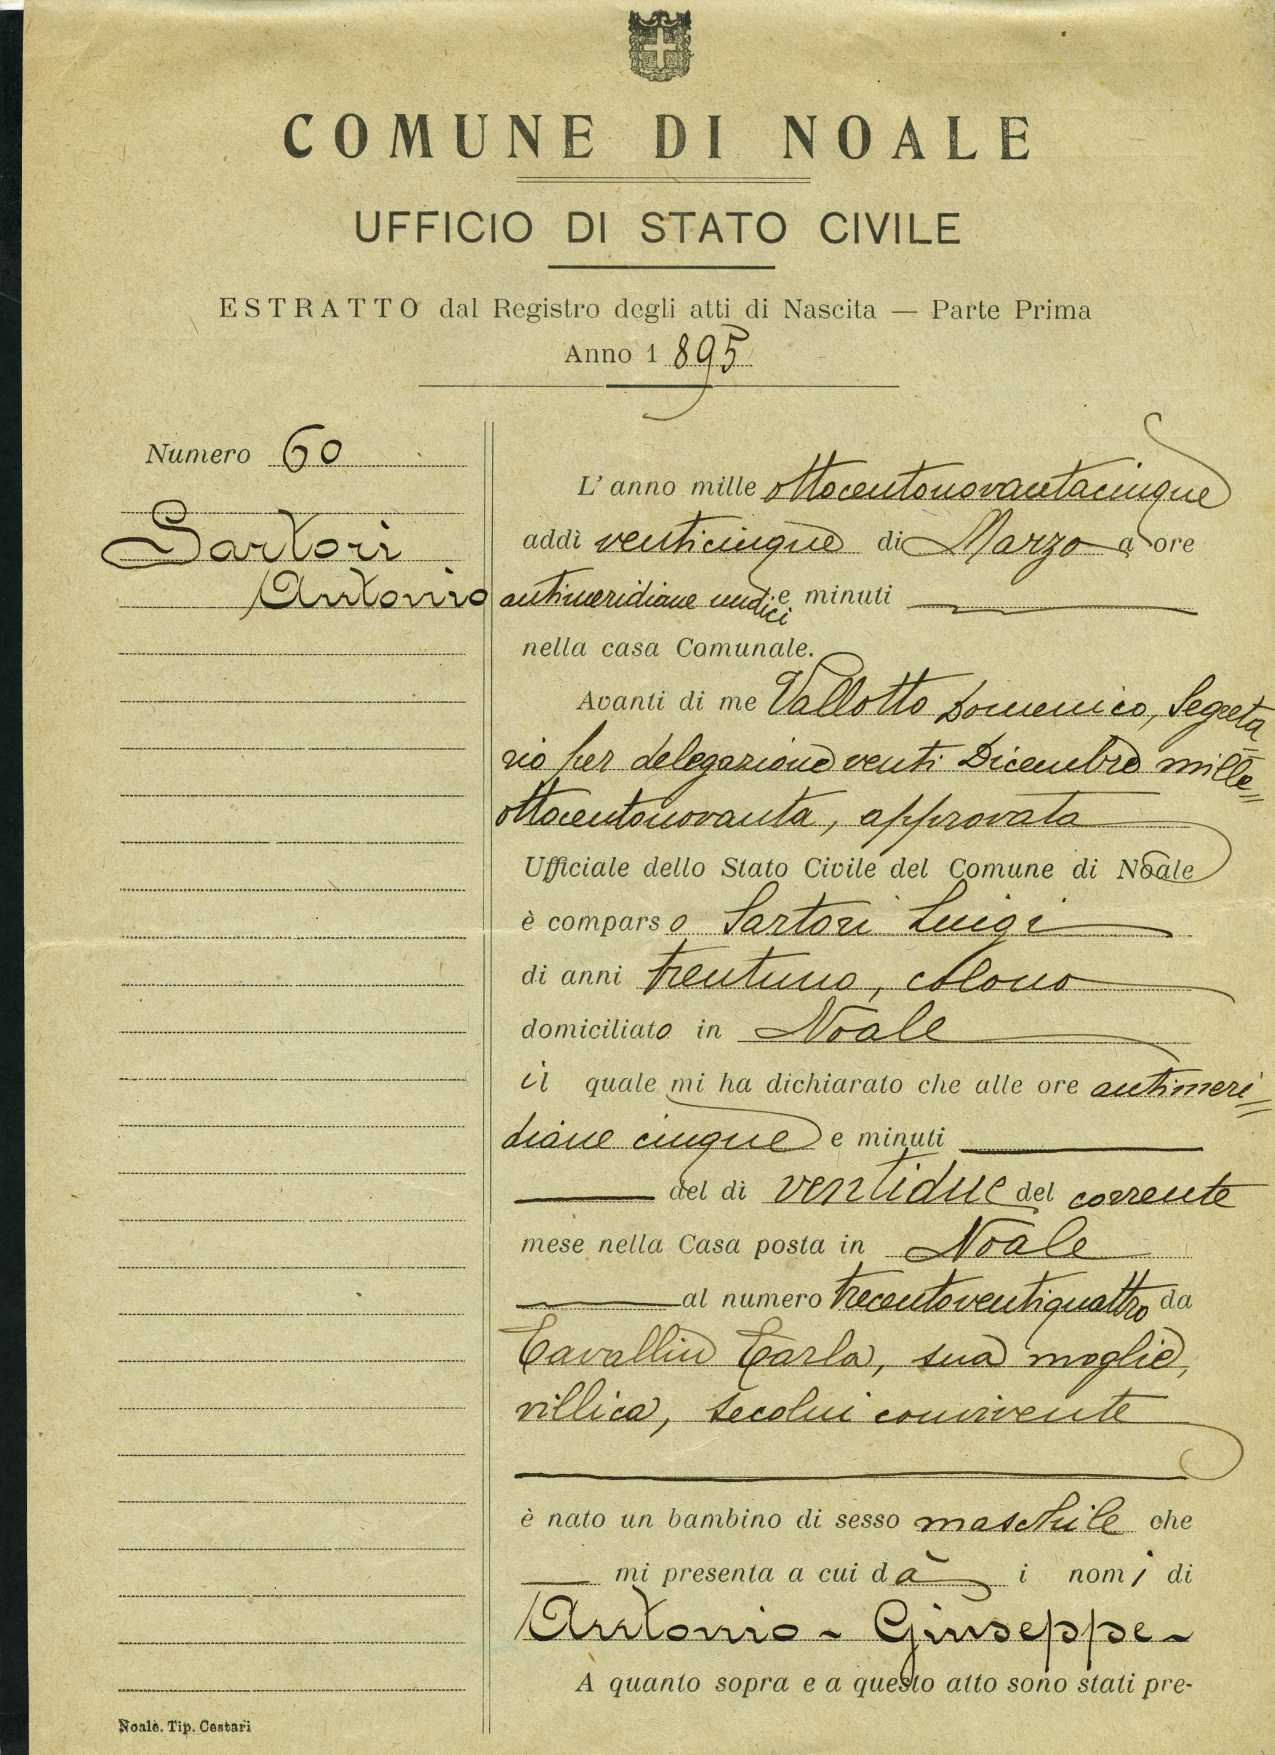 COMUNE DI NOALE
UFFICIO DI STATO CIVILE
ESTRATTO dal Registro degli atti di Nascita — Parte Prima
Anno 1895
Numero 60
Sartori
Antonio
L'anno mille ottocentonovantacinque
addì venticinque di Marzo a ore
antimeridiane undici e minuti
nella casa Comunale.
Avanti di me Vallotto Domenico, Segreta
rio per delegazione venti Dicembre mille=
ottocentonovanta, approvata
Ufficiale dello Stato Civile del Comune di Noale
è comparso Sartori Luigi
di anni trentuno, colono
domiciliato in Noale
il quale mi ha dichiarato che alle ore antimeri=
diane cinque e minuti
del dì ventidue del corrente
mese nella Casa posta in Noale
al numero trecentoventiquattro da
Cavallin Carla, sua moglie,
villica, secolui convivente
è nato un bambino di sesso maschile che
mi presenta a cui dà i nomi di
Antonio - Giuseppe -
A quanto sopra e a questo atto sono stati pre-
Noale. Tip. Cestari